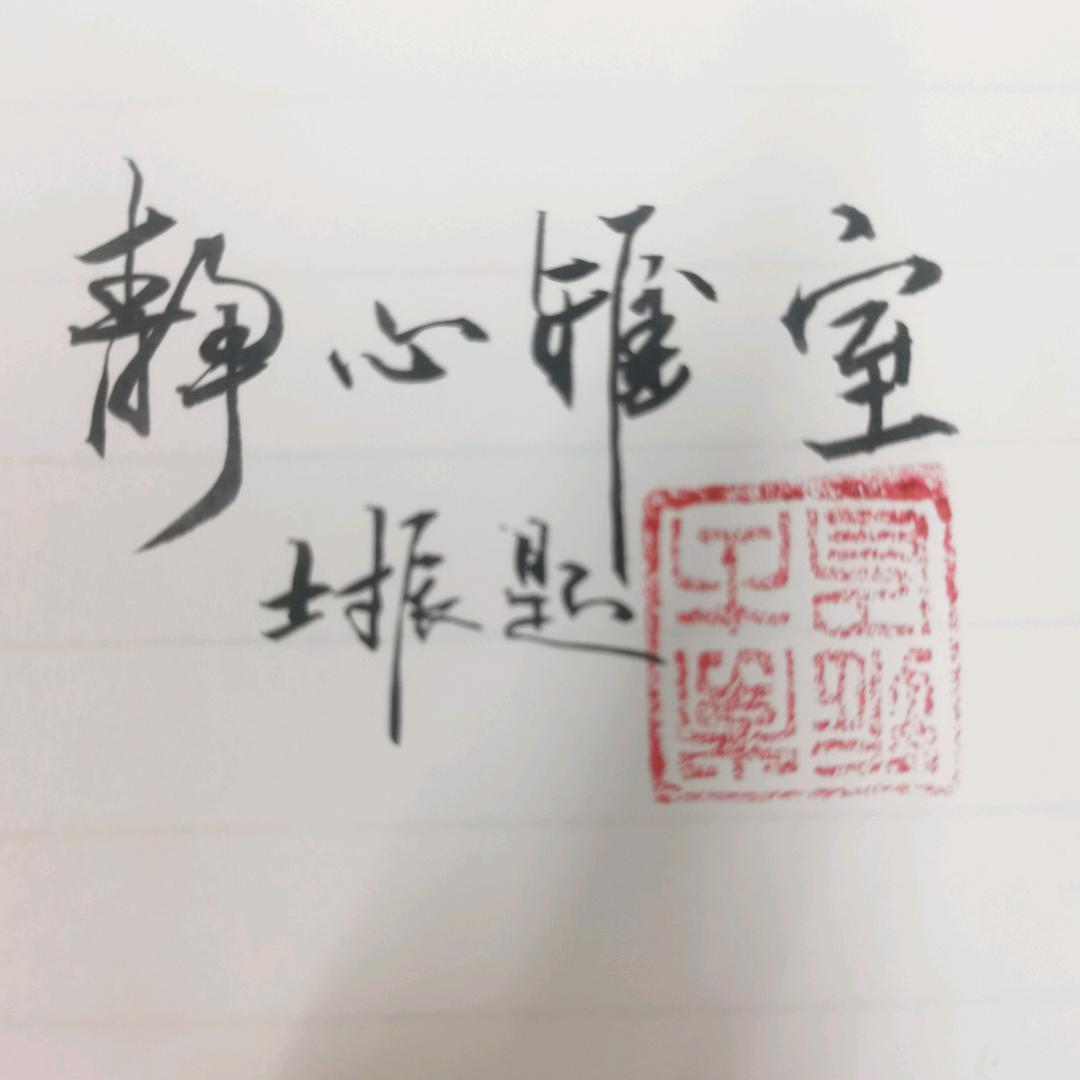 静心雅室
士振题